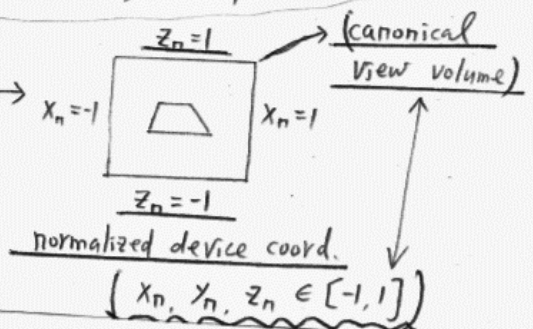 Zn = 1
(canonical
view volume)
Xn = -1
Xn = 1
Zn = -1
normalized device coord.
(Xn, Yn, Zn ∈ [-1, 1])